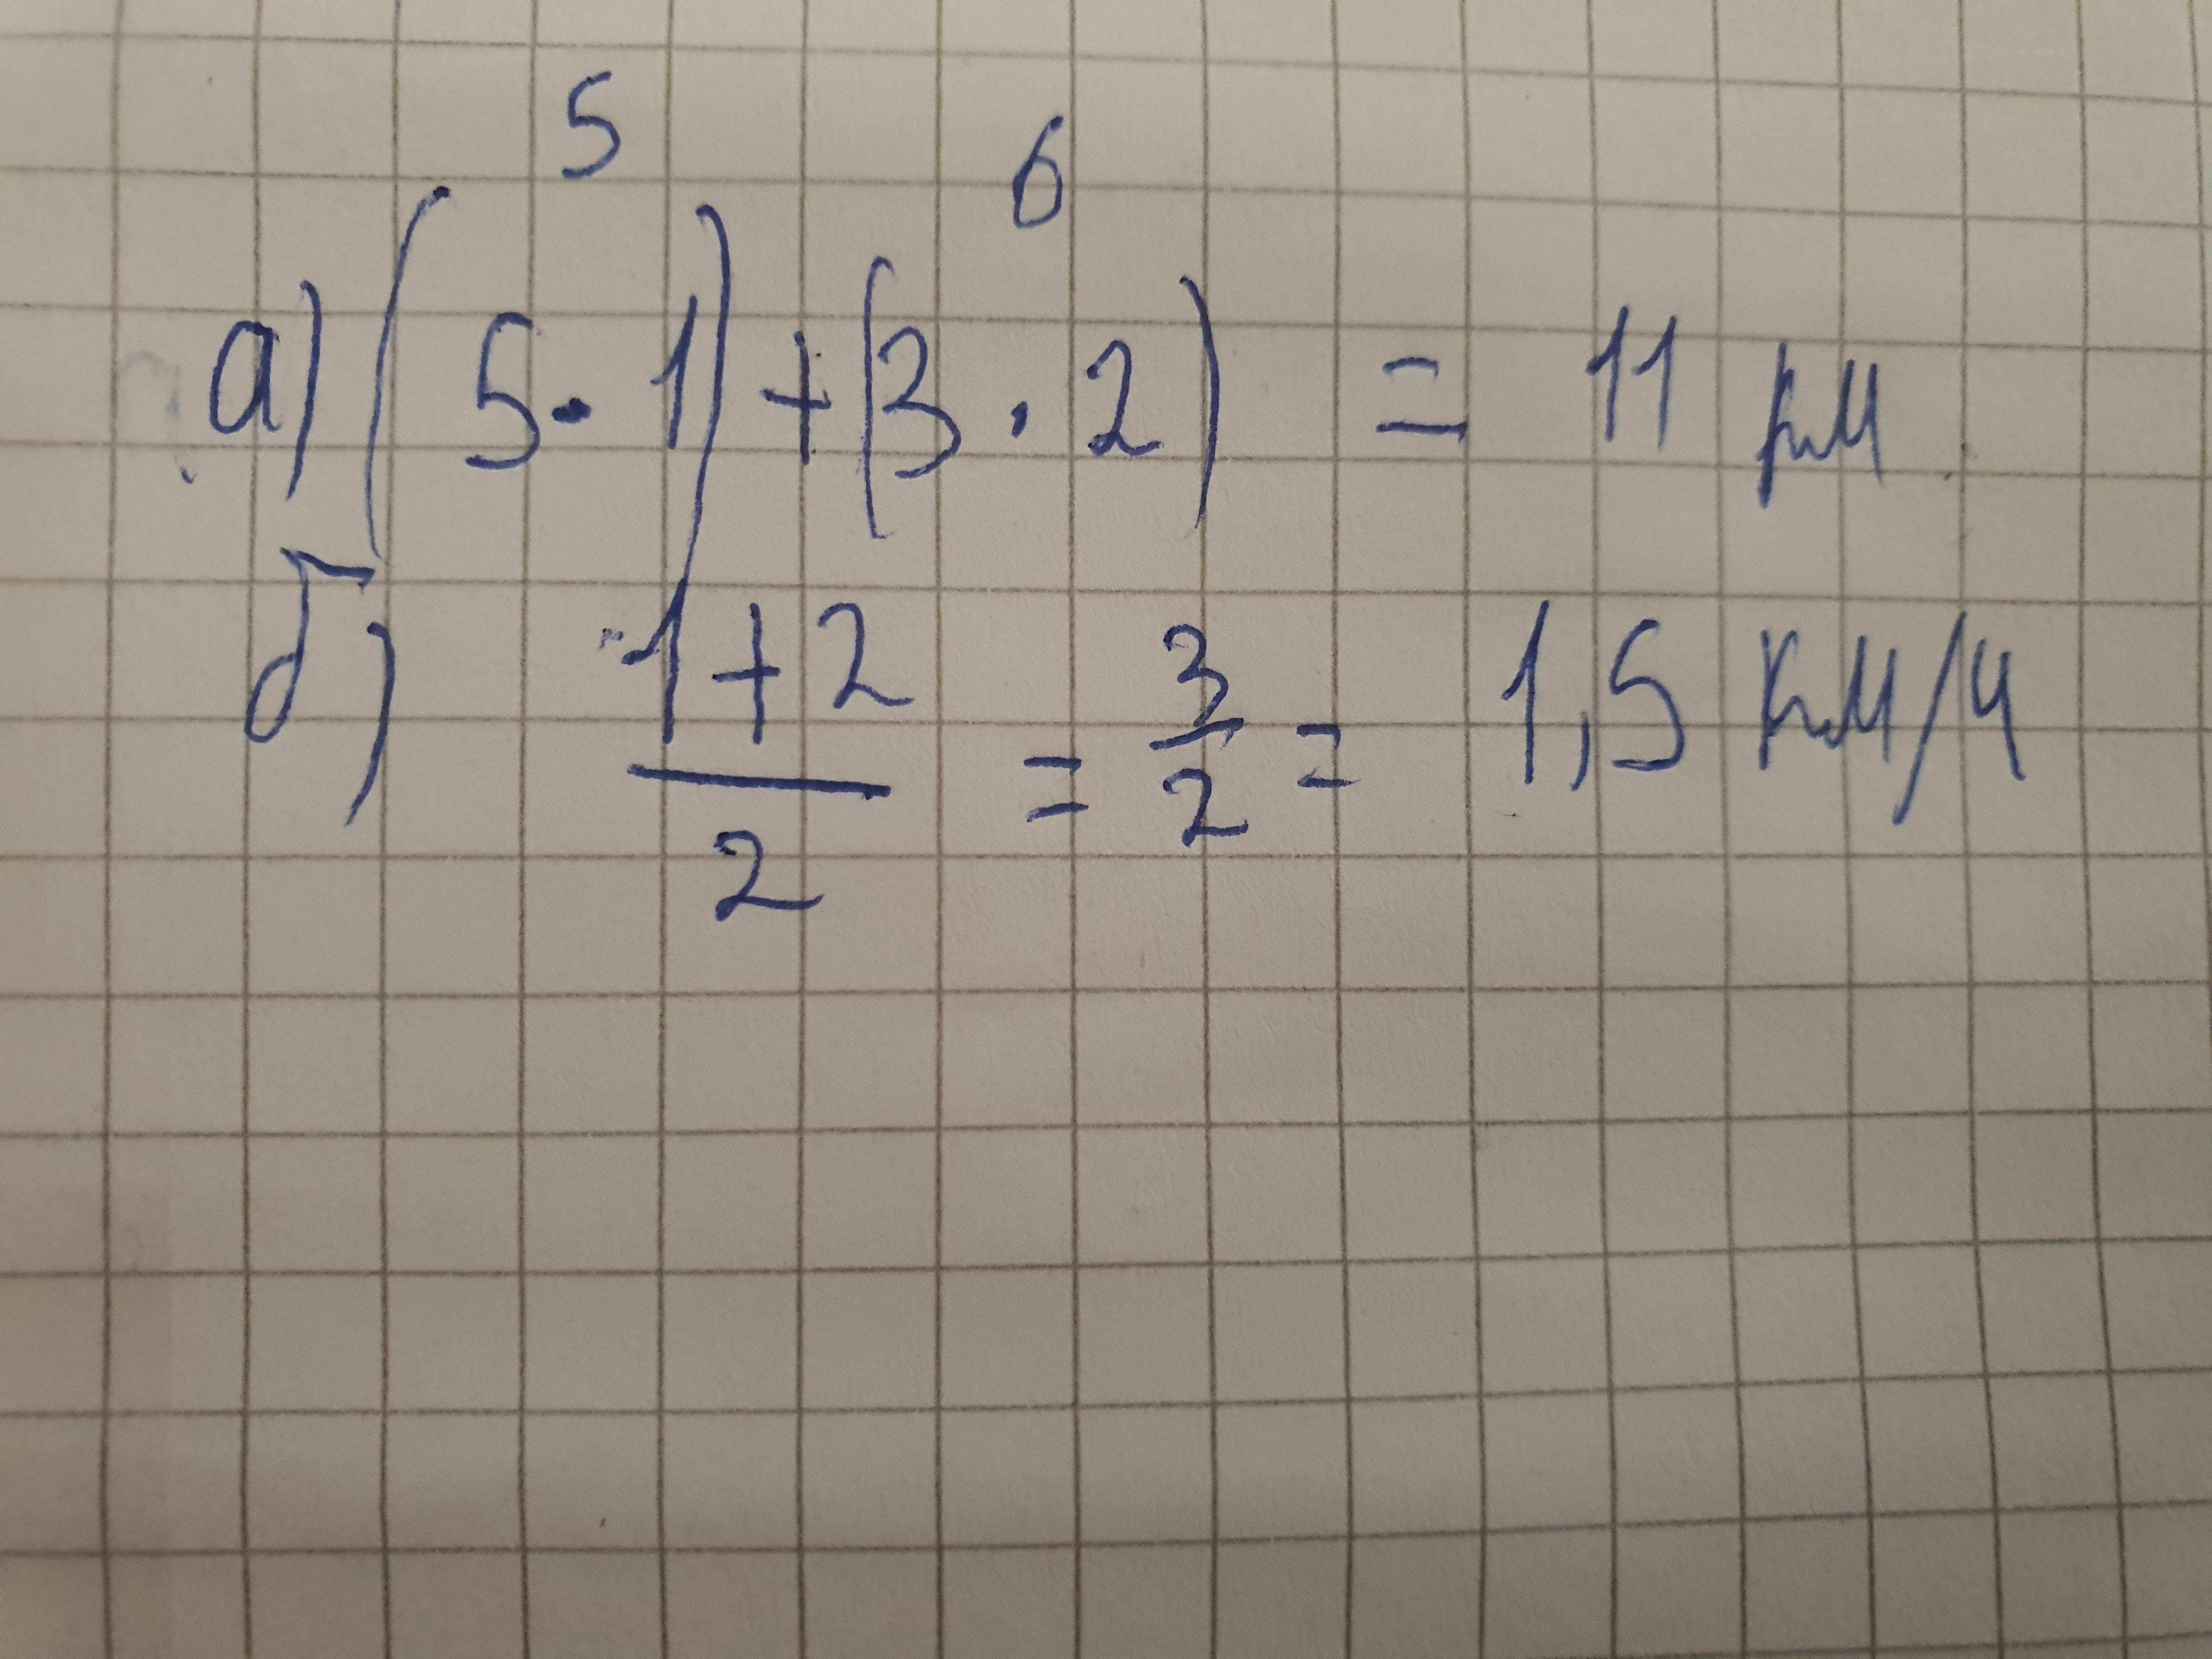 5 6
а) (5·1)+(3·2) = 11 км
б) 1+2/2 = 3/2 = 1,5 км/ч